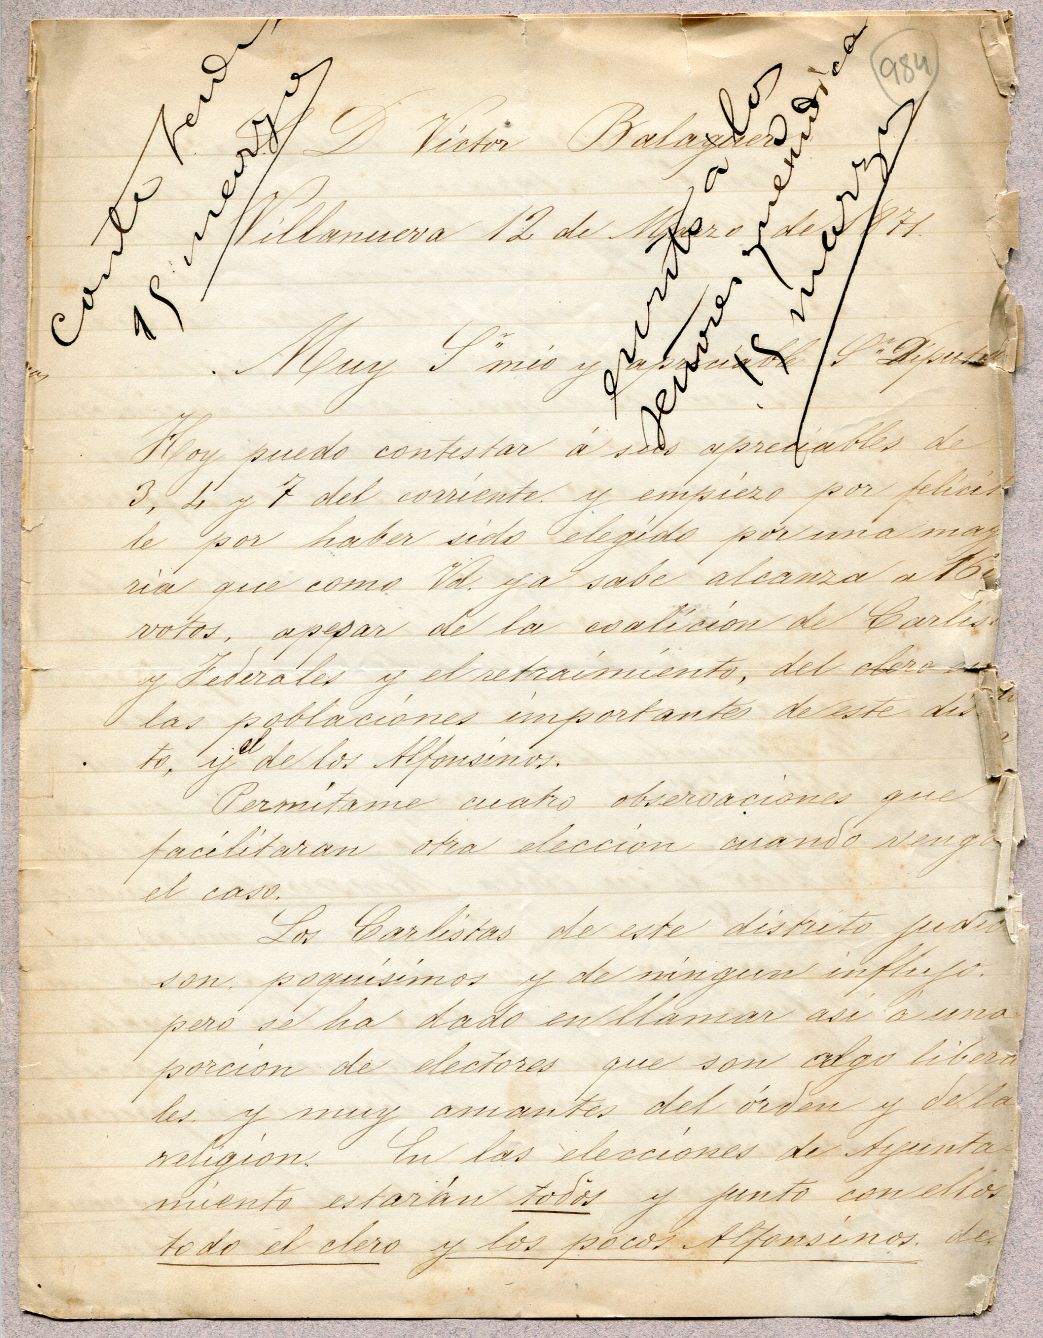 984
conte
15 marzo
escrito a los
señores que indica
15 marzo
S. D Víctor Balaguer
Villanueva 12 de Marzo de 1871.
Muy Sr mio y apreciable Sr
Hoy puedo contestar á sus apreciables de
3, 4 y 7 del corriente. y empiezo por felicit
le por haber sido elegido por una may
ria que como Vd. ya sabe alcanza a
votos, apesar de la coalición de Carlis
y Federales y el retraimiento, del clero en
las poblaciónes importantes de este dis
to, y el de los Alfonsinos.
Permítame cuatro observaciones que
facilitaran otra eleccion cuando venga
el caso.
Los Carlistas de este distrito judic
son poquísimos y de ningun influjo.
pero se ha dado en llamar así á una
porcion de electores que son algo libera
les. y muy amantes del órden y de la
religion. En las elecciones de Ayunta
miento estarán todos y junto con ellos
todo el clero y los pocos Alfonsinos de